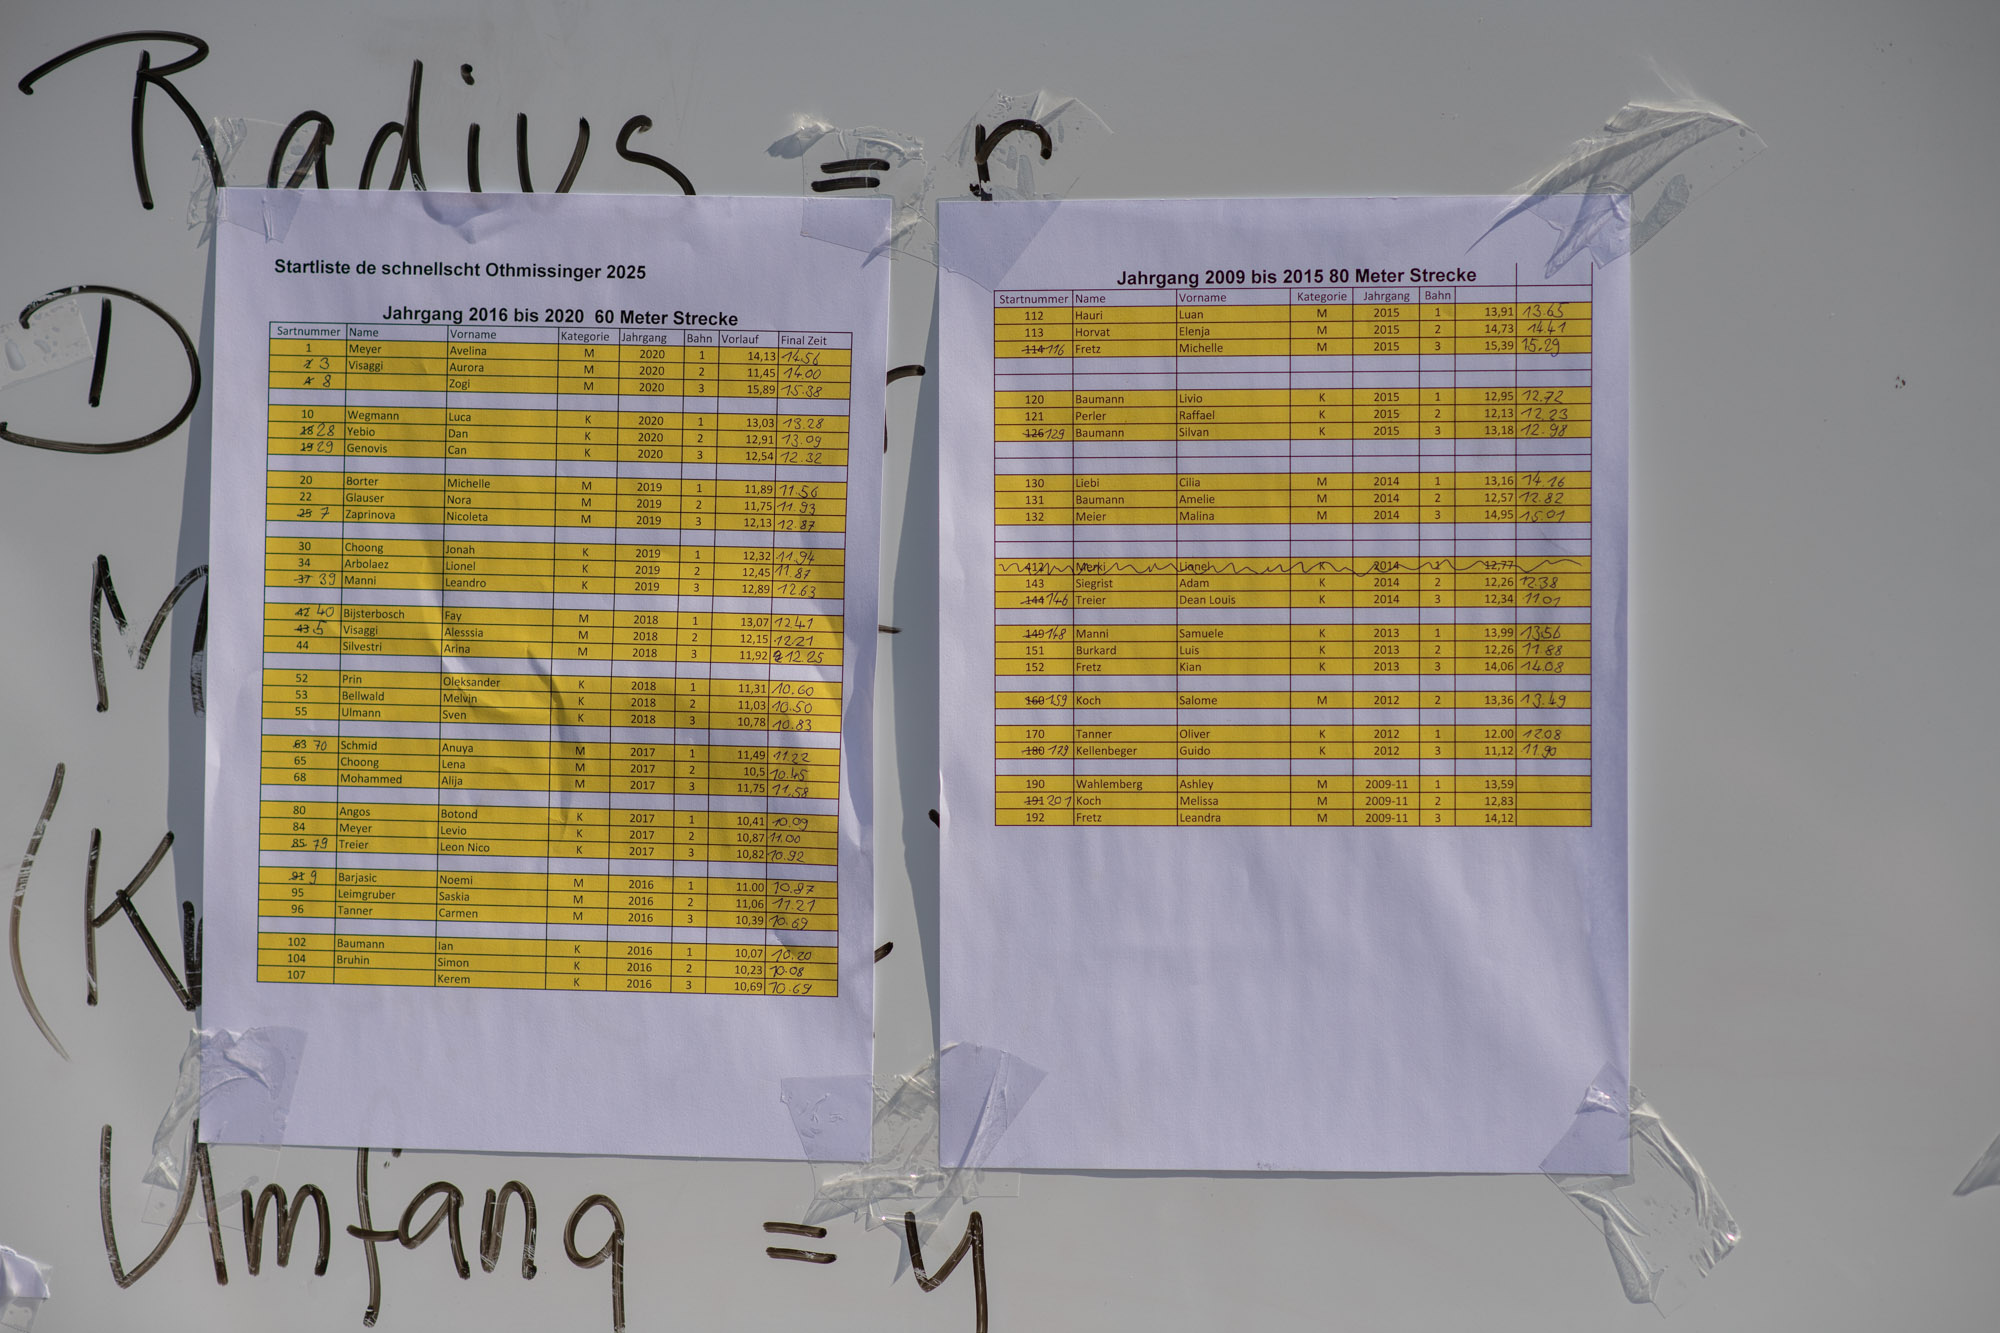 Radius = r
D
M
(K
Umfang = u
Startliste de schnellscht Othmissinger 2025
Jahrgang 2016 bis 2020 60 Meter Strecke
Sartnummer Name Vorname Kategorie Jahrgang Bahn Vorlauf Final Zeit
1 Meyer Avelina M 2020 1 14,13 14.56
3 Visaggi Aurora M 2020 2 11,45 14.00
8 Zogi M 2020 3 15,89 15.38
10 Wegmann Luca K 2020 1 13,03 13.28
18 28 Yebio Dan K 2020 2 12,91 13.09
19 29 Genovis Can K 2020 3 12,54 12.32
20 Borter Michelle M 2019 1 11,89 11.56
22 Glauser Nora M 2019 2 11,75 11.93
25 7 Zaprinova Nicoleta M 2019 3 12,13 12.87
30 Choong Jonah K 2019 1 12,32 11.94
34 Arbolaez Lionel K 2019 2 12,45 11.87
37 39 Manni Leandro K 2019 3 12,89 12.63
42 40 Bijsterbosch Fay M 2018 1 13,07 12.41
43 5 Visaggi Alesssia M 2018 2 12,15 12.21
44 Silvestri Arina M 2018 3 11,92 12.25
52 Prin Oleksander K 2018 1 11,31 10.60
53 Bellwald Melvin K 2018 2 11,03 10.50
55 Ulmann Sven K 2018 3 10,78 10.83
63 70 Schmid Anuya M 2017 1 11,49 11.22
65 Choong Lena M 2017 2 10,5 10.45
68 Mohammed Alija M 2017 3 11,75 11.58
80 Angos Botond K 2017 1 10,41 10.09
84 Meyer Levio K 2017 2 10,87 11.00
85 79 Treier Leon Nico K 2017 3 10,82 10.92
91 9 Barjasic Noemi M 2016 1 11.00 10.87
95 Leimgruber Saskia M 2016 2 11,06 11.21
96 Tanner Carmen M 2016 3 10,39 10.69
102 Baumann Ian K 2016 1 10,07 10.20
104 Bruhin Simon K 2016 2 10,23 10.08
107 Kerem K 2016 3 10,69 10.69
Jahrgang 2009 bis 2015 80 Meter Strecke
Startnummer Name Vorname Kategorie Jahrgang Bahn
112 Hauri Luan M 2015 1 13,91 13.65
113 Horvat Elenja M 2015 2 14,73 14.41
114 116 Fretz Michelle M 2015 3 15,39 15.29
120 Baumann Livio K 2015 1 12,95 12.72
121 Perler Raffael K 2015 2 12,13 12.23
126 129 Baumann Silvan K 2015 3 13,18 12.98
130 Liebi Cilia M 2014 1 13,16 14.16
131 Baumann Amelie M 2014 2 12,57 12.82
132 Meier Malina M 2014 3 14,95 15.01
412 Merki Lionel K 2014 1 12,77
143 Siegrist Adam K 2014 2 12,26 12.38
144 146 Treier Dean Louis K 2014 3 12,34 11.01
149 148 Manni Samuele K 2013 1 13,99 13.56
151 Burkard Luis K 2013 2 12,26 11.88
152 Fretz Kian K 2013 3 14,06 14.08
160 159 Koch Salome M 2012 2 13,36 13.49
170 Tanner Oliver K 2012 1 12.00 12.08
180 129 Kellenbeger Guido K 2012 3 11,12 11.90
190 Wahlemberg Ashley M 2009-11 1 13,59
191 201 Koch Melissa M 2009-11 2 12,83
192 Fretz Leandra M 2009-11 3 14,12